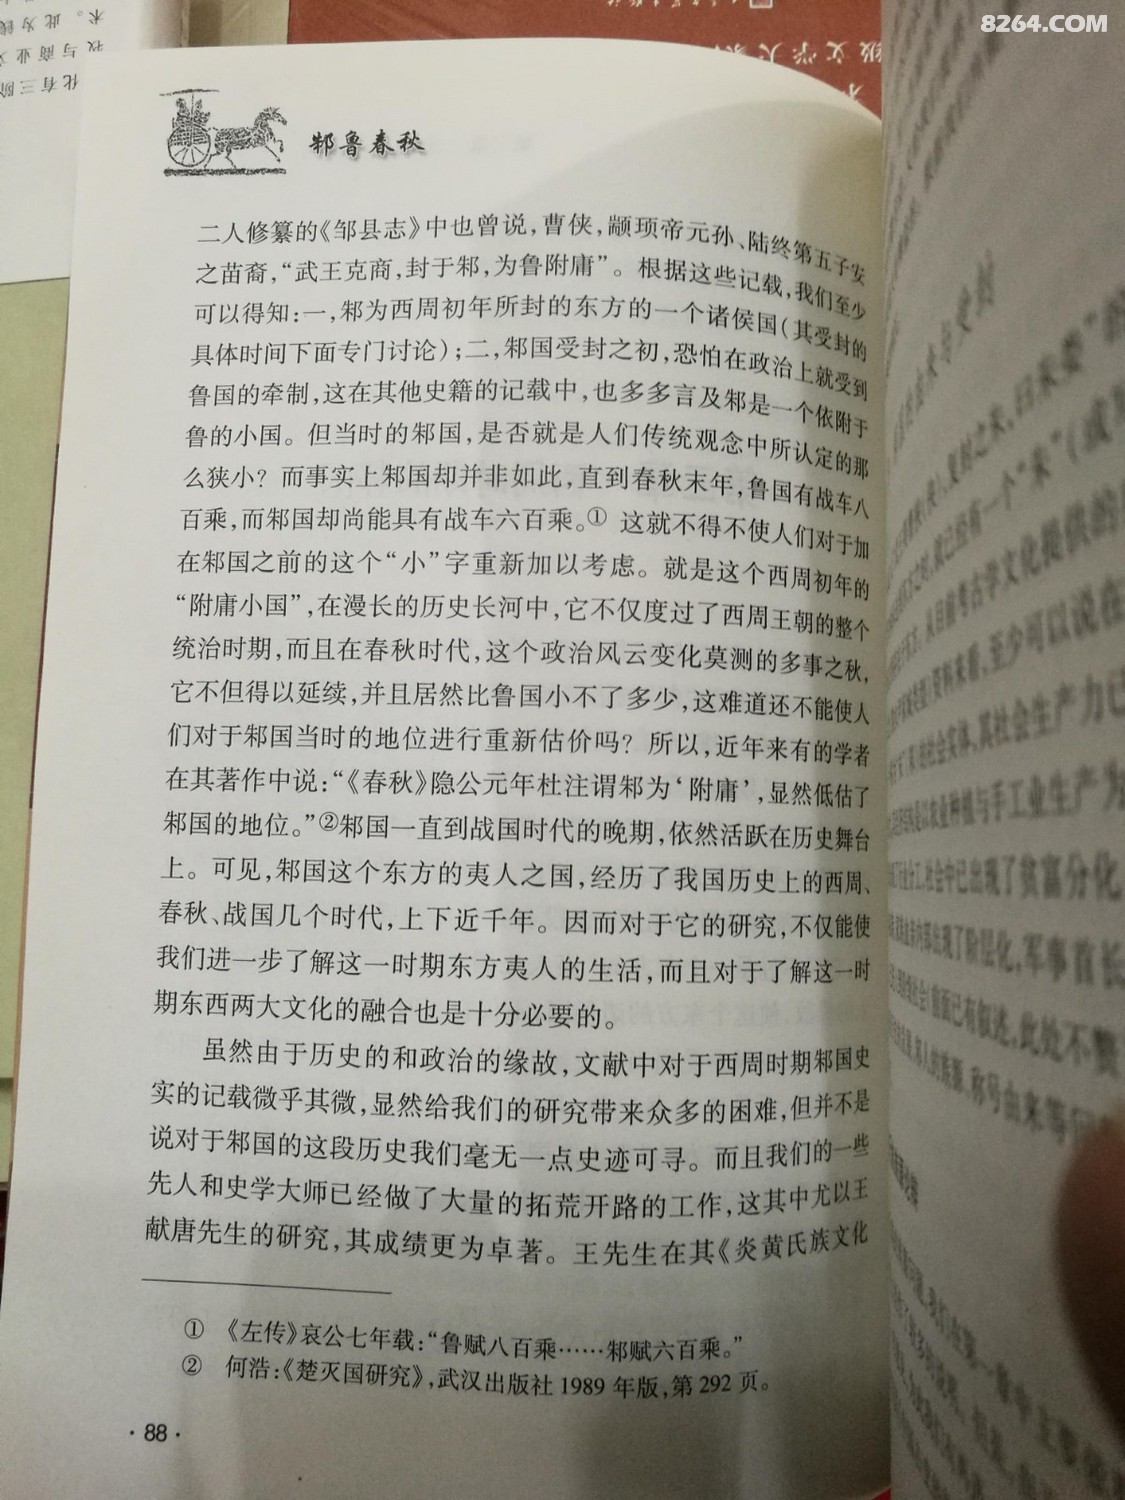 8264.COM
级文学大系
术。此为钱
技与商业文
化有三阶
邾鲁春秋
二人修纂的《邹县志》中也曾说，曹侠，颛顼帝元孙、陆终第五子安
之苗裔，“武王克商，封于邾，为鲁附庸”。根据这些记载，我们至少
可以得知：一，邾为西周初年所封的东方的一个诸侯国（其受封的
具体时间下面专门讨论）；二，邾国受封之初，恐怕在政治上就受到
鲁国的牵制，这在其他史籍的记载中，也多多言及邾是一个依附于
鲁的小国。但当时的邾国，是否就是人们传统观念中所认定的那
么狭小？而事实上邾国却并非如此，直到春秋末年，鲁国有战车八
百乘，而邾国却尚能具有战车六百乘。① 这就不得不使人们对于加
在邾国之前的这个“小”字重新加以考虑。就是这个西周初年的
“附庸小国”，在漫长的历史长河中，它不仅度过了西周王朝的整个
统治时期，而且在春秋时代，这个政治风云变化莫测的多事之秋，
它不但得以延续，并且居然比鲁国小不了多少，这难道还不能使人
们对于邾国当时的地位进行重新估价吗？所以，近年来有的学者
在其著作中说：“《春秋》隐公元年杜注谓邾为‘附庸’，显然低估了
邾国的地位。”②邾国一直到战国时代的晚期，依然活跃在历史舞台
上。可见，邾国这个东方的夷人之国，经历了我国历史上的西周、
春秋、战国几个时代，上下近千年。因而对于它的研究，不仅能使
我们进一步了解这一时期东方夷人的生活，而且对于了解这一时
期东西两大文化的融合也是十分必要的。
虽然由于历史的和政治的缘故，文献中对于西周时期邾国史
实的记载微乎其微，显然给我们的研究带来众多的困难，但并不是
说对于邾国的这段历史我们毫无一点史迹可寻。而且我们的一些
先人和史学大师已经做了大量的拓荒开路的工作，这其中尤以王
献唐先生的研究，其成绩更为卓著。王先生在其《炎黄氏族文化
① 《左传》哀公七年载：“鲁赋八百乘……邾赋六百乘。”
② 何浩：《楚灭国研究》，武汉出版社1989年版，第292页。
·88·